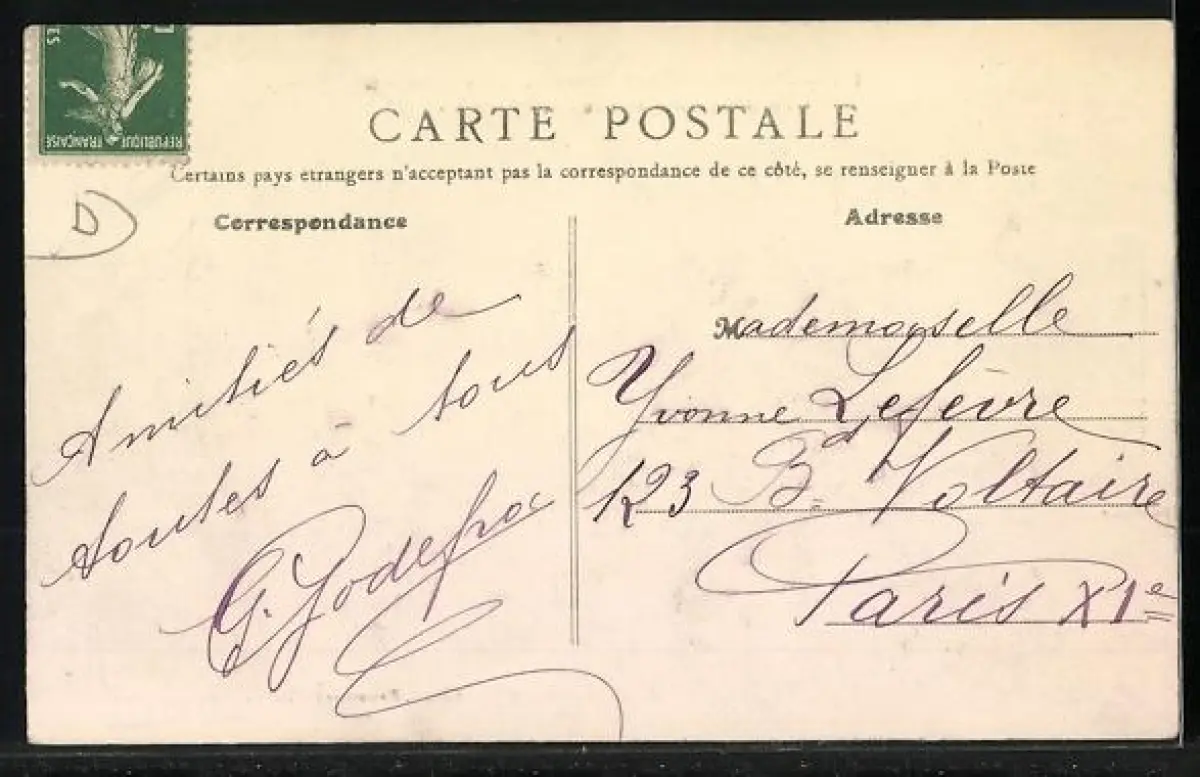 RÉPUBLIQUE FRANÇAISE
CARTE POSTALE
Certains pays etrangers n'acceptant pas la correspondance de ce côté, se renseigner à la Poste
D
Correspondance
Amitiés de
toutes à tous
Adresse
Mademoiselle
Yvonne Lefèvre
123 Bd Voltaire
Paris XIe